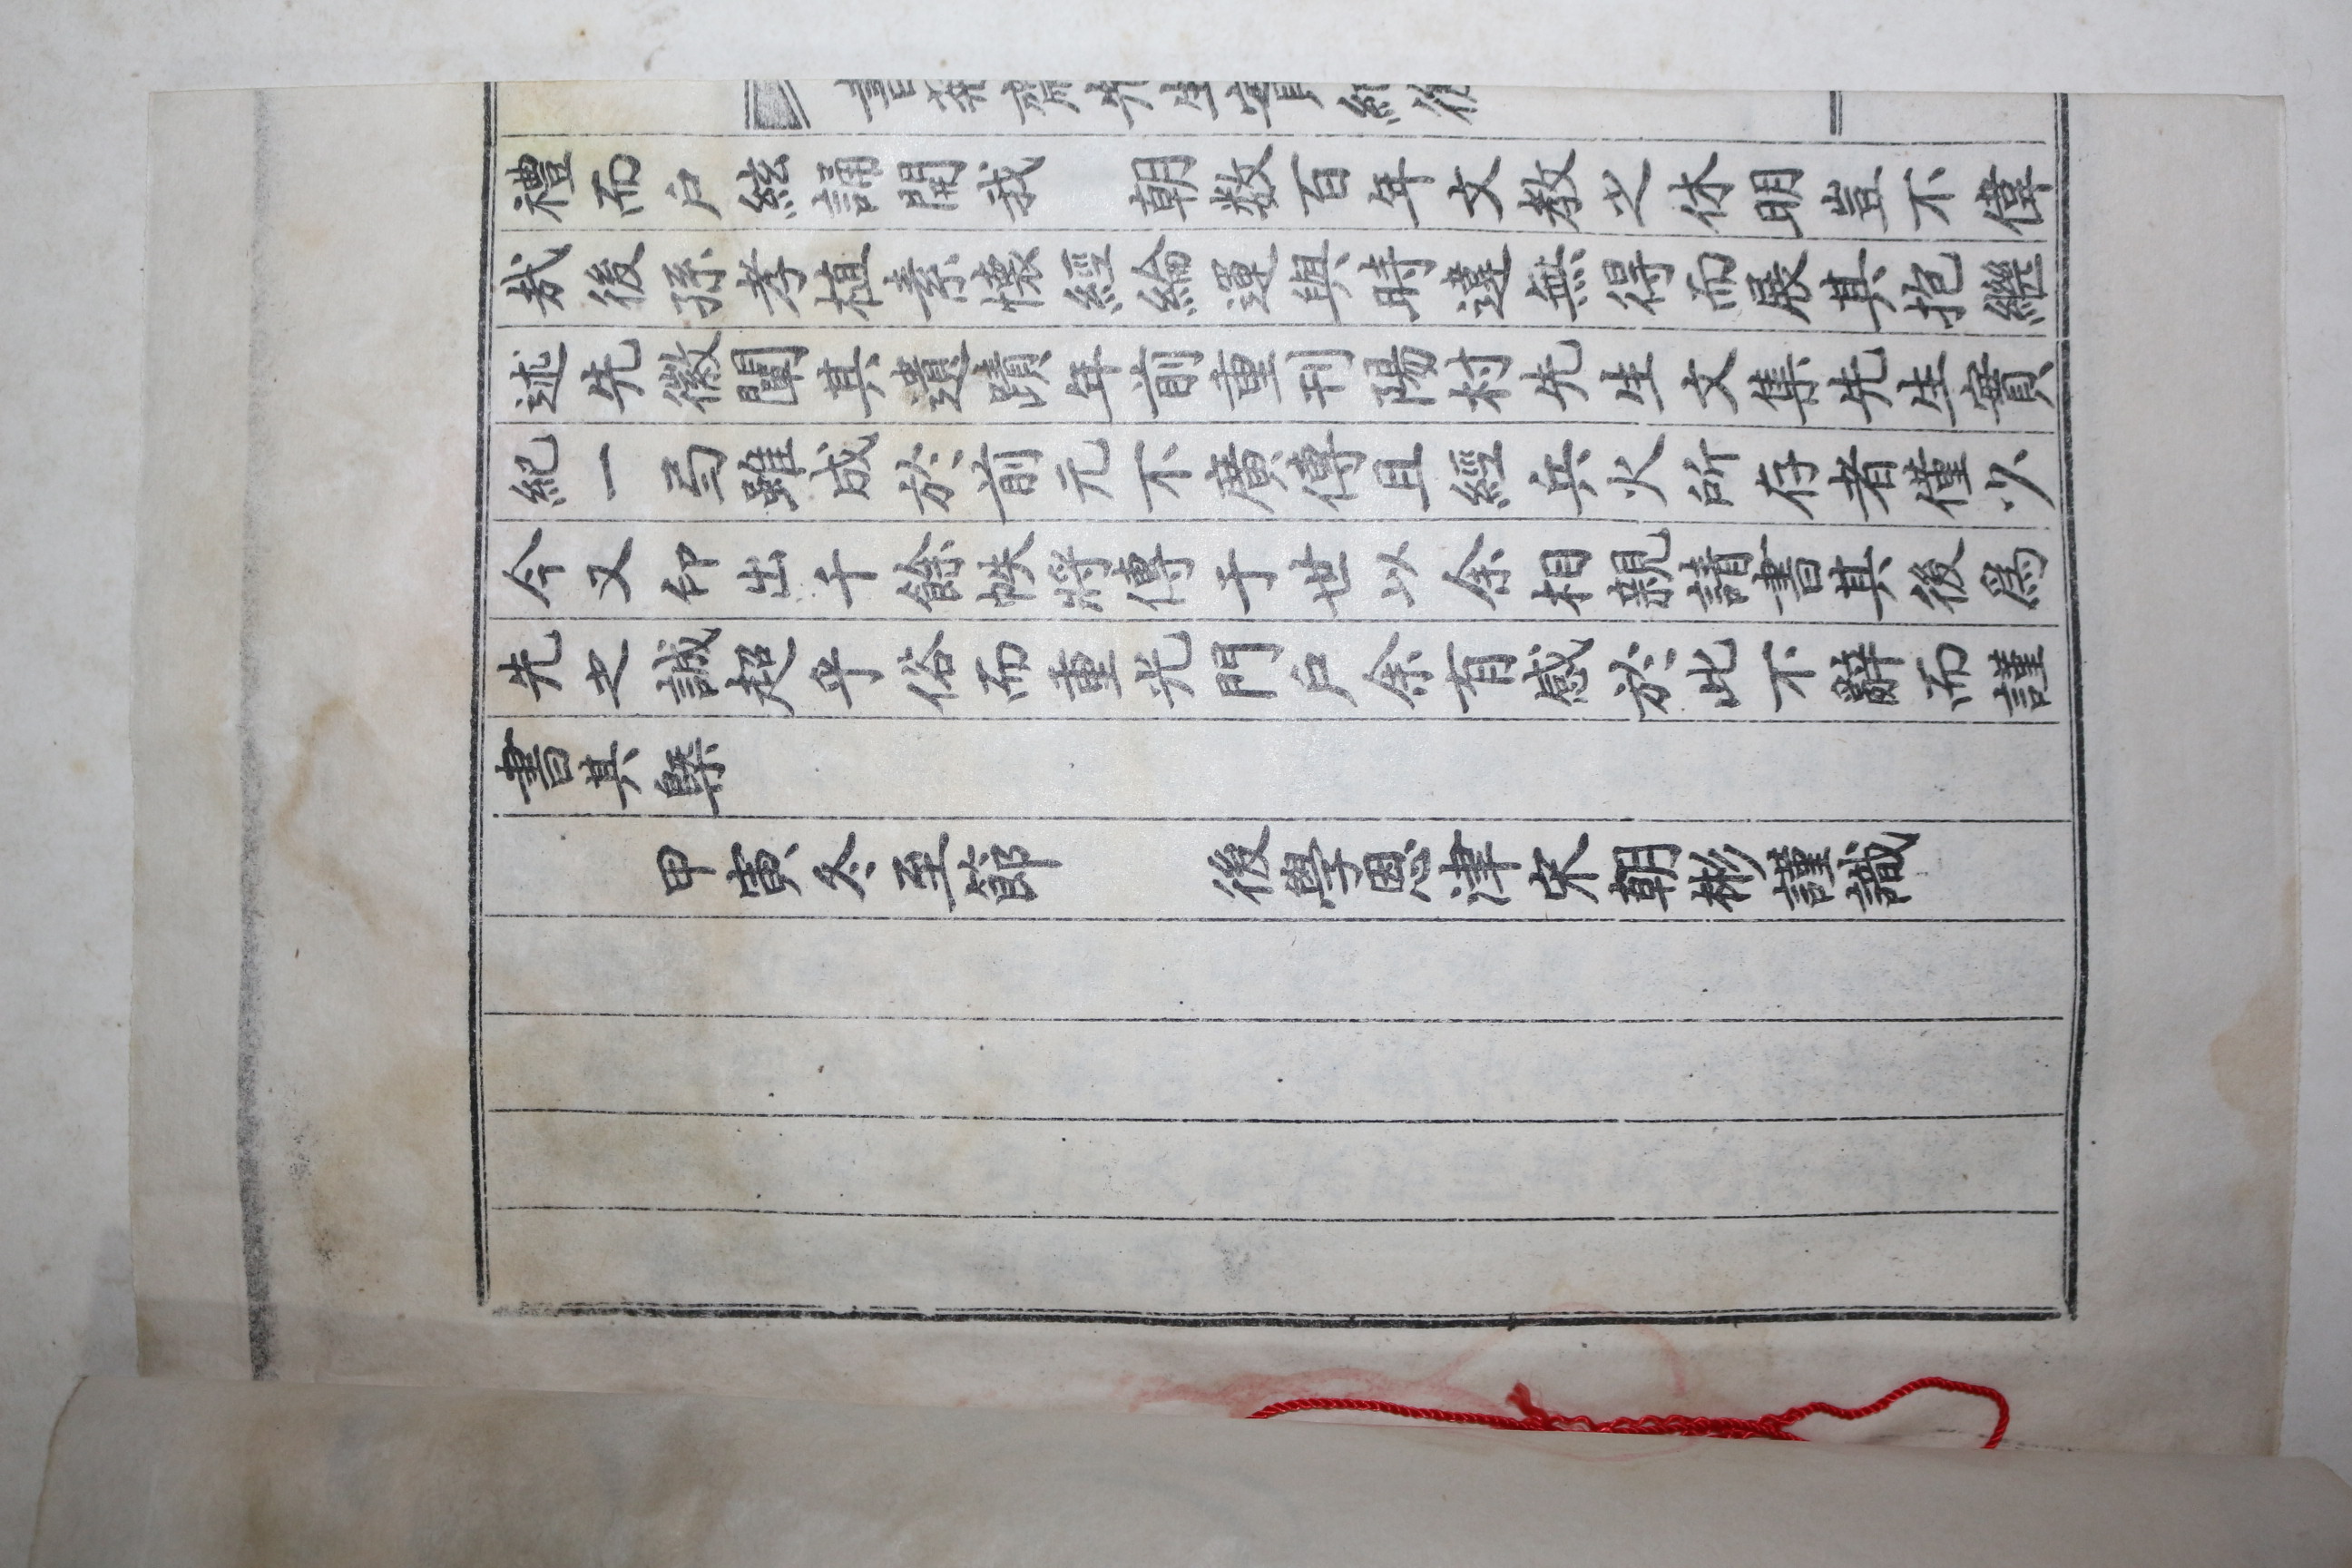 書発齋先生實紀後
禮而戶絃誦開我　朝数百年文教之休明豈不偉
哉後孫孝植素懷經綸運與時違無得而展其抱繼
述先徽闡其遺蹟年前重刊陽村先生文集先生實
紀一弓雖成於前元不廣傳且經兵火所存者僅少
今又印出千餘帙將傳于世以余相親請書其後爲
先之誠超乎俗而重光門戶余有感於此不辭而謹
書其槩
甲寅冬至節　後學恩津宋朝彬謹識